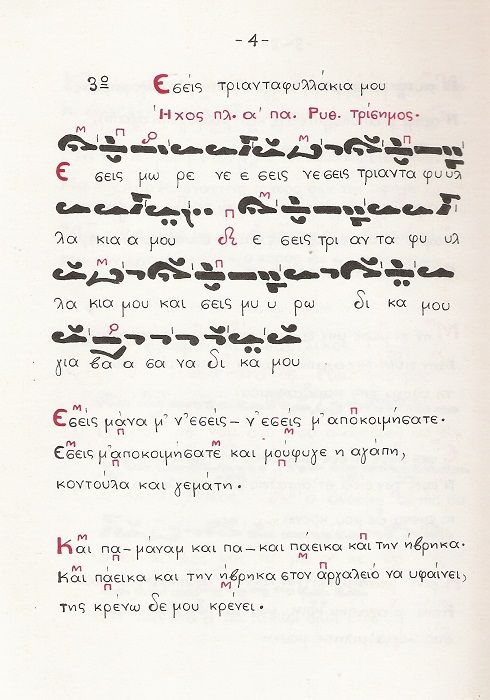 - 4 -
3º Εσείς τριανταφυλλάκια μου
Ήχος πλ. α' πα. Ρυθ. τρίσημος.
Ε σεις μω ρε νε ε σεις νε σεις τριαντα φυ υλ
λα κια α μου ε σεις τρι αν τα φυ υλ
λα κια μου και σεις μυ υ ρω δι κα μου
για βα α σα να δι κα μου
Εσείς μάνα μ' ν'εσείς- ν'εσείς μ'αποκοιμήσατε.
Εσείς μ'αποκοιμήσατε και μούφυγε η αγάπη,
κοντούλα και γεμάτη.
Και πα-μάναμ και πα- και πάεικα και την ήβρηκα.
Και πάεικα και την ήβρηκα στον αργαλειό να υφαίνει,
της κρένω δε μου κρένει.